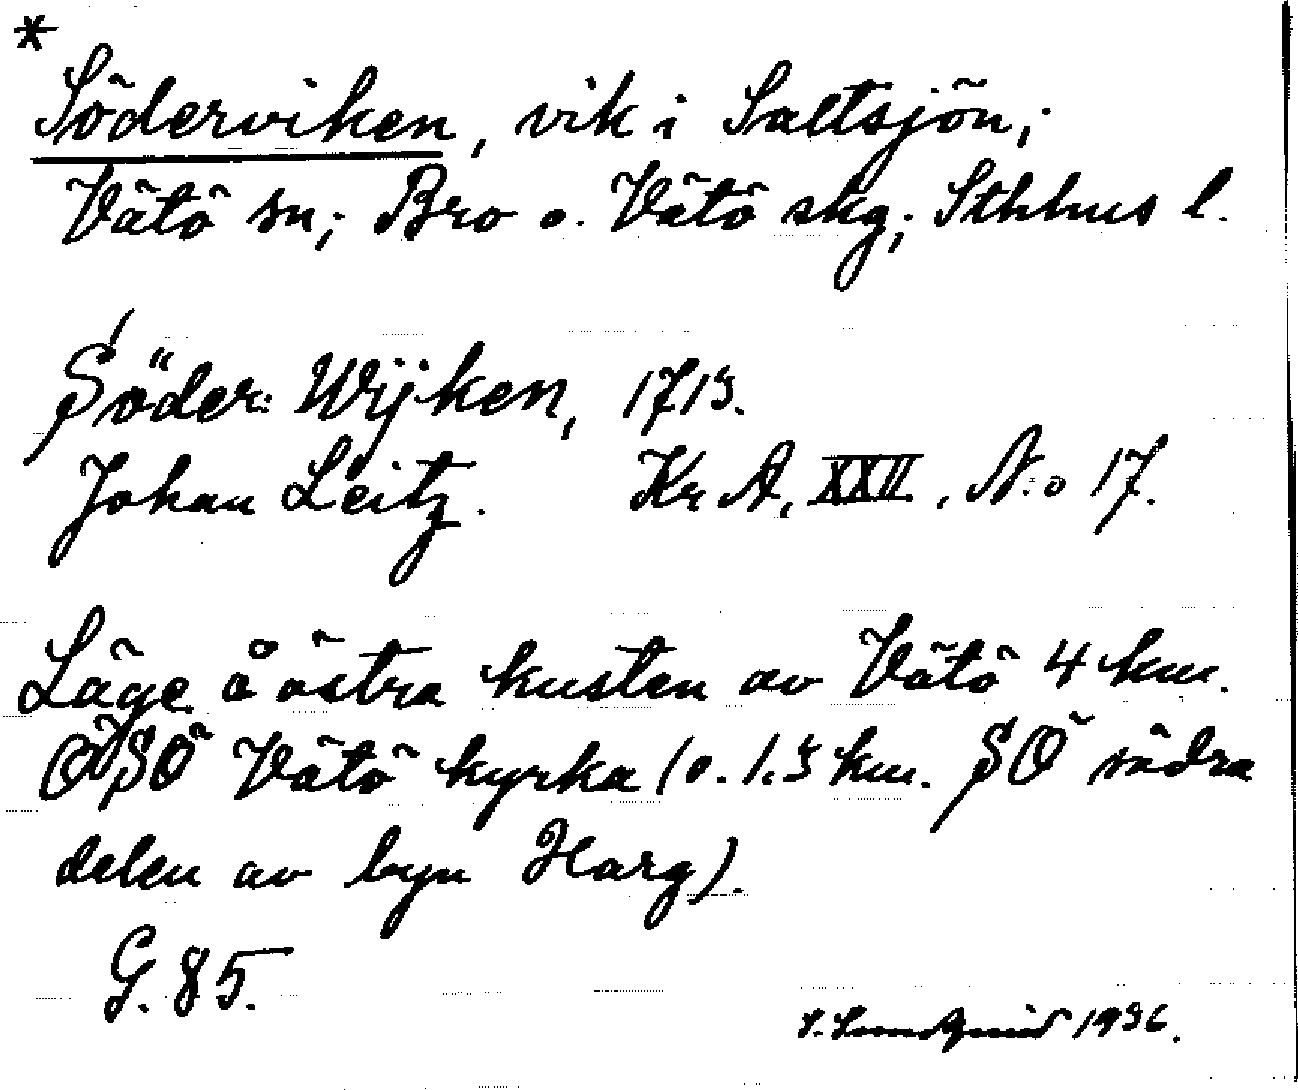 *
Söderviken, vik i Saltsjön;
Vätö sn; Bro o. Vätö skg; Sthlms l.
Söder: Wijken, 1713.
Johan Leitz. Kr A, XXII, N:o 17.
Läge å östra kusten av Vätö 4 km.
ÖSÖ Vätö kyrka (o. 1.3 km. SÖ södra
delen av byn Harg).
G. 85.
1936.